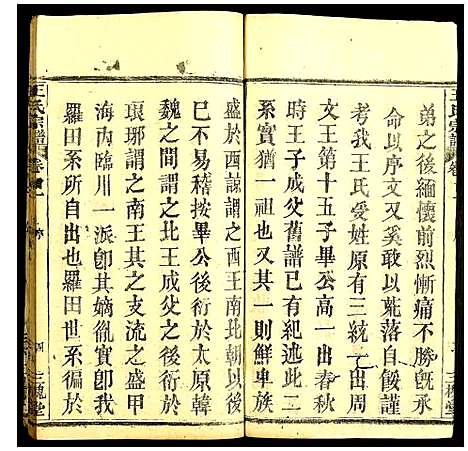 弟之後緬懷前烈慚痛不勝旣承
命以序文又奚敢以荒落自餒謹
考我王氏受姓原有三統一出周
文王第十五子畢公高一出春秋
時王子成父舊譜已具載之此二
系實猶一祖也又其一則鮮卑族
盛於西諒謂之西王南北朝以後
已不易稽按畢公後衍於太原韓
魏之間謂之北王成父之後衍於
琅琊謂之南王其之支流之盛甲
海內臨川一派卽其嫡胤實卽我
羅田系所自出也羅田世系徧於
王氏宗譜
卷首一
序
四
三槐堂